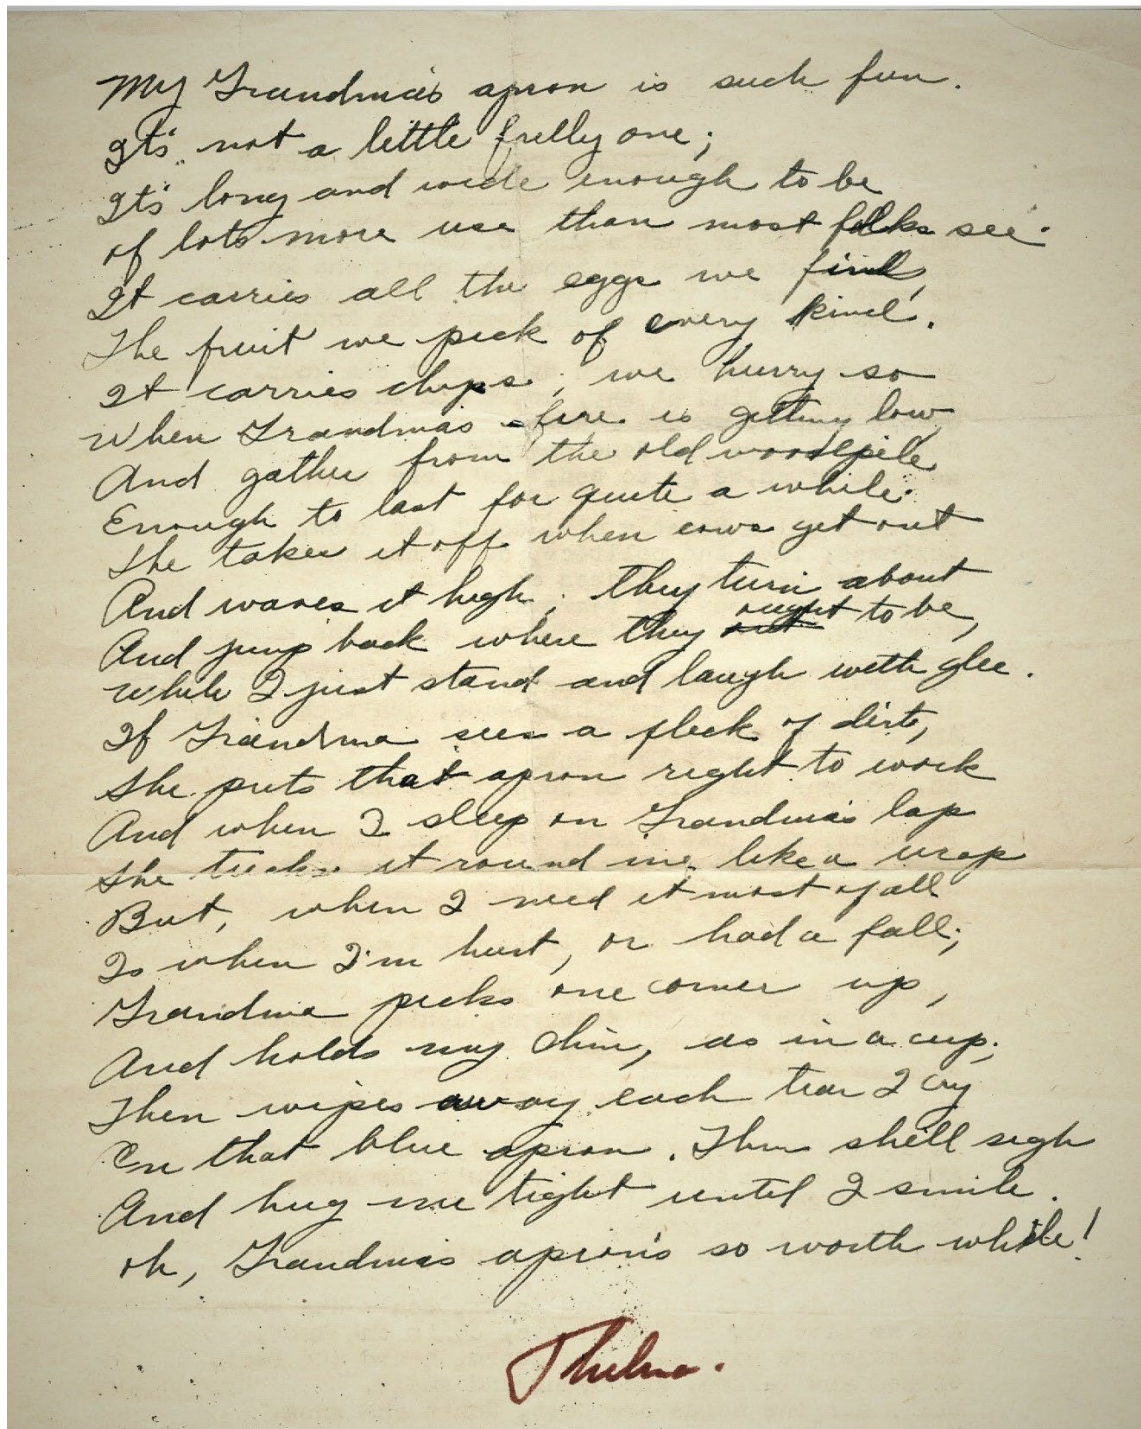 My Grandma's apron is such fun.
It's not a little frilly one;
It's long and wide enough to be
of lots more use than most folks see.
It carries all the eggs we find,
The fruit we pick of every kind.
It carries chips; we hurry so
When Grandma's fire is getting low
And gather from the old woodpile
Enough to last for quite a while.
She takes it off when cows get out
And waves it high; they turn about
And jump back where they ought to be,
While I just stand and laugh with glee.
If Grandma sees a fleck of dirt,
She puts that apron right to work
And when I sleep on Grandma's lap
She tucks it round me like a wrap
But, when I need it most of all
Is when I'm hurt, or had a fall;
Grandma picks one corner up,
And holds my chin, as in a cup;
Then wipes away each tear I cry
On that blue apron. Then she'll sigh
And hug me tight until I smile.
oh, Grandma's apron's so worth while!
Thelma.